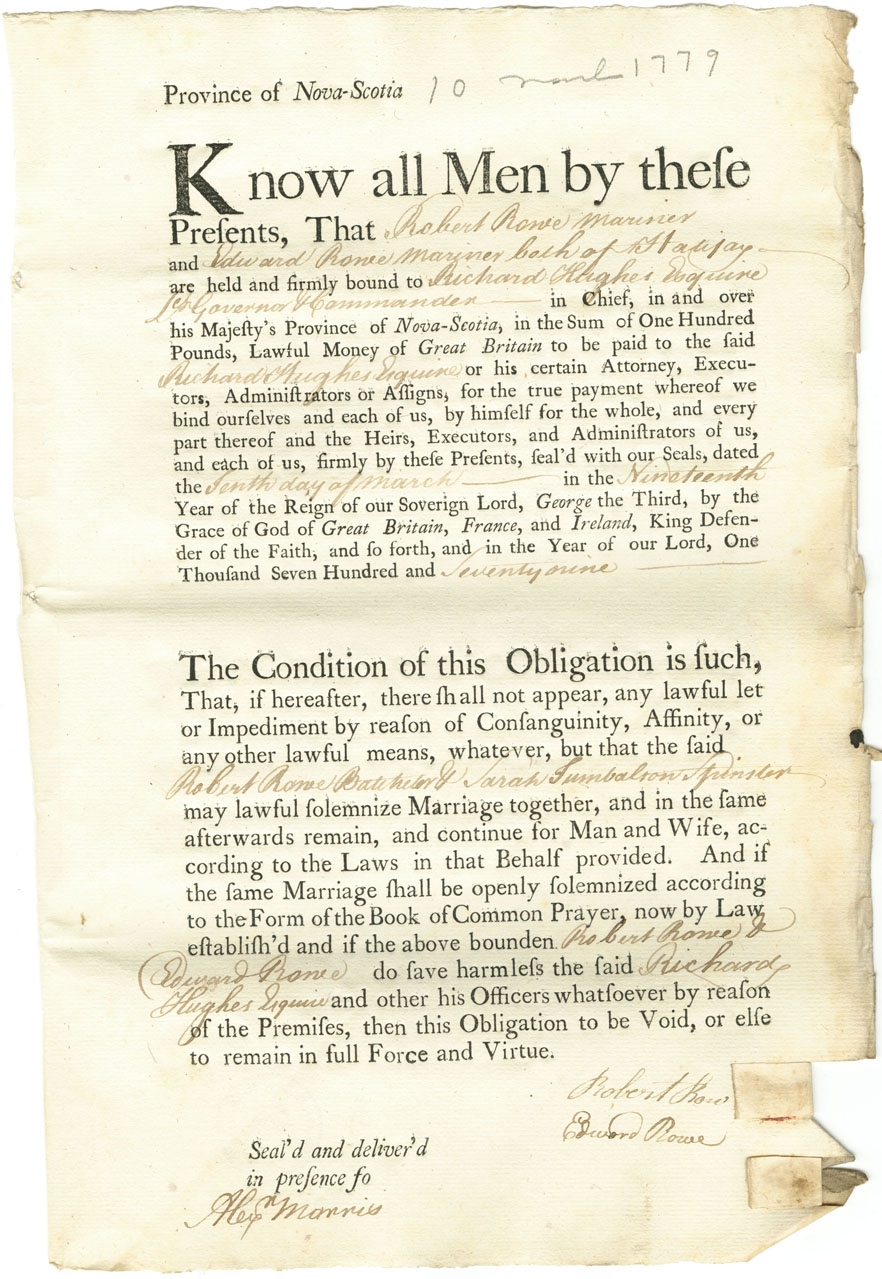 Province of Nova-Scotia 10 March 1779
Know all Men by theſe
Preſents, That Robert Rowe Mariner
and Edward Rowe Mariner both of Halifax
are held and firmly bound to Richard Hughes Esquire
Lt Governor & Commander in Chief, in and over
his Majeſty's Province of Nova-Scotia, in the Sum of One Hundred
Pounds, Lawful Money of Great Britain to be paid to the ſaid
Richard Hughes Esquire or his certain Attorney, Execu-
tors, Adminiſtrators or Aſſigns, for the true payment whereof we
bind ourſelves and each of us, by himſelf for the whole, and every
part thereof and the Heirs, Executors, and Adminiſtrators of us,
and each of us, firmly by theſe Preſents, ſeal'd with our Seals, dated
the Tenth day of March in the Nineteenth
Year of the Reign of our Soverign Lord, George the Third, by the
Grace of God of Great Britain, France, and Ireland, King Defen-
der of the Faith, and ſo forth, and in the Year of our Lord, One
Thouſand Seven Hundred and Seventy nine
The Condition of this Obligation is ſuch,
That, if hereafter, there ſhall not appear, any lawful let
or Impediment by reaſon of Conſanguinity, Affinity, or
any other lawful means, whatever, but that the ſaid
Robert Rowe Batchelor & Sarah Tumbalson Spinster
may lawful ſolemnize Marriage together, and in the ſame
afterwards remain, and continue for Man and Wife, ac-
cording to the Laws in that Behalf provided. And if
the ſame Marriage ſhall be openly ſolemnized according
to the Form of the Book of Common Prayer, now by Law
eſtabliſh'd and if the above bounden Robert Rowe &
Edward Rowe do ſave harmleſs the ſaid Richard
Hughes Esquire and other his Officers whatſoever by reaſon
of the Premiſes, then this Obligation to be Void, or elſe
to remain in full Force and Virtue.
Robert Row
Edward Rowe
Seal'd and deliver'd
in preſence fo
Alexr Morris